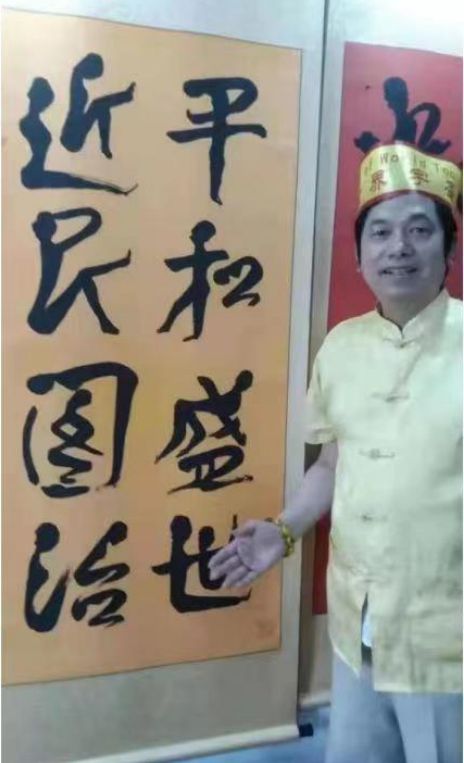 平和盛世
近民國治
World
界字